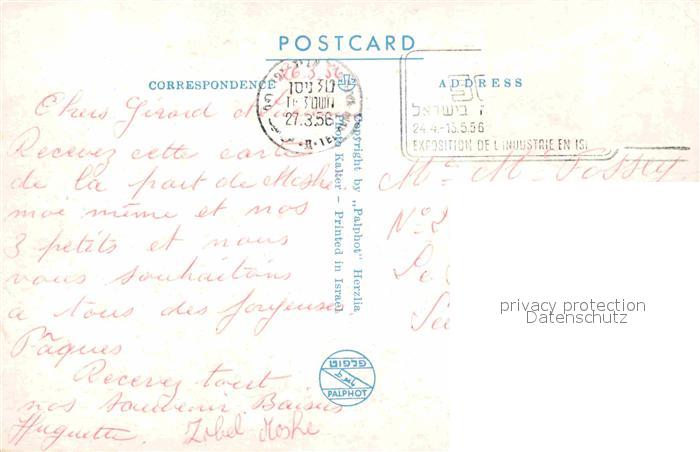 POSTCARD
CORRESPONDENCE
ADDRESS
26.3.56
Chers Girard
Recevez cette carte
de la part de Moshe
moi même et nos
3 petits et nous
vous souhaitons
a tous des joyeuse
Pâques
Recevez tout
nos souvenir Baisers
Huguette. Moshe
27.3.56
בישראל
24.4.-15.5.56
EXPOSITION DE L'INDUSTRIE EN IS
No
Copyright by „Palphot" Herzlia,
Photo Kalter – Printed in Israel
פלפוט
PALPHOT
privacy protection
Datenschutz